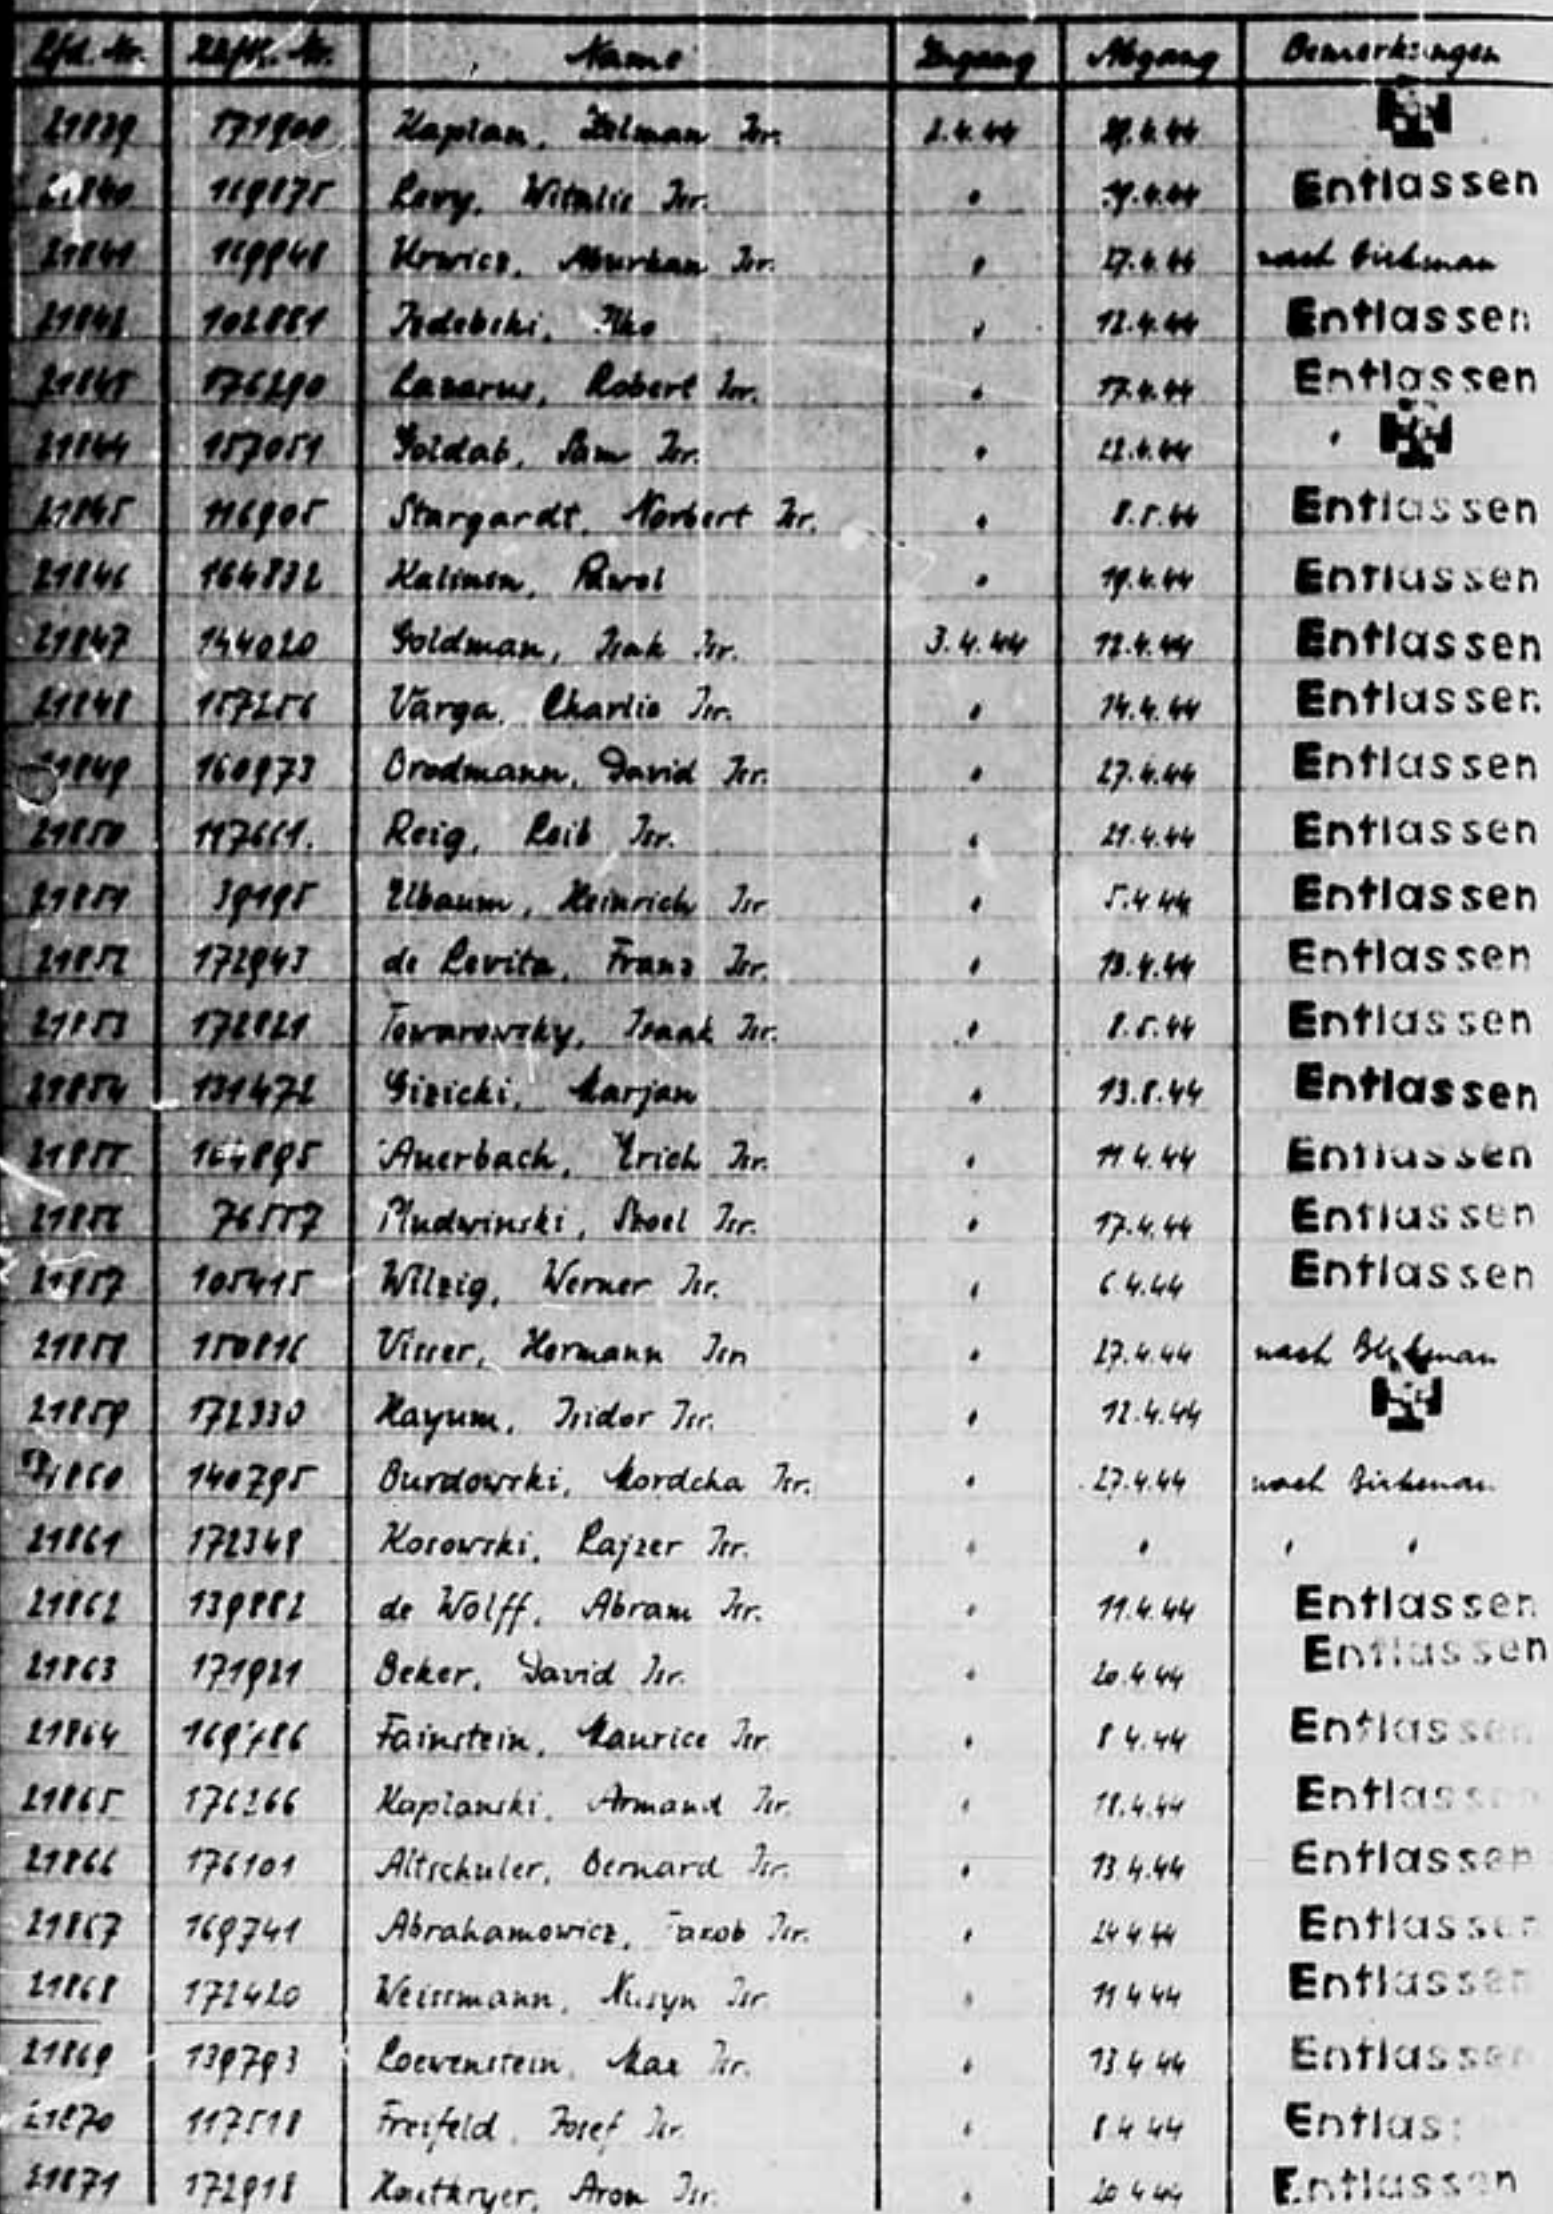 Lfd. Nr. Häftl. Nr. Name Zugang Abgang Bemerkungen
21839 171908 Kaplan, Zelman Isr. 2.4.44 29.4.44
21840 169875 Levy, Witalie Isr. " 19.4.44 Entlassen
21841 169948 Urwicz, Abraham Isr. " 27.4.44 nach Birkenau
21842 102881 " 12.4.44 Entlassen
21843 176290 Lazarus, Robert Isr. " 17.4.44 Entlassen
21844 157051 Goldab, Sam Isr. " 22.4.44 "
21845 116905 Stargardt, Norbert Isr. " 8.5.44 Entlassen
21846 164832 Kalinin, Pawel " 19.4.44 Entlassen
21847 144020 Goldman, Isak Isr. 3.4.44 12.4.44 Entlassen
21848 157256 Varga, Charlie Isr. " 14.4.44 Entlassen
21849 160973 Brodmann, David Isr. " 27.4.44 Entlassen
21850 117661. Reig, Leib Isr. " 21.4.44 Entlassen
21851 39195 Elbaum, Heinrich Isr " 5.4.44 Entlassen
21852 172943 de Levita, Franz Isr. " 18.4.44 Entlassen
21853 172821 Towarowsky, Isaak Isr. " 8.5.44 Entlassen
21854 131472 Gizicki, Marjan " 13.5.44 Entlassen
21855 164895 Auerbach, Erich Isr. " 11.4.44 Entlassen
21856 76557 Pludwinski, Isr. " 17.4.44 Entlassen
21857 105415 Wilzig, Werner Isr. " 6.4.44 Entlassen
21858 150816 Visser, Hermann Isr " 27.4.44 nach Birkenau
21859 172330 Kayum, Isidor Isr. " 12.4.44
21860 140795 Burdowski, Mordcha Isr. " 27.4.44 nach Birkenau
21861 172348 Kosowski, Lajzer Isr. " " " "
21862 139882 de Wolff, Abram Isr. " 11.4.44 Entlassen
21863 171921 Beker, David Isr. " 20.4.44 Entlassen
21864 Fainstein, Maurice Isr. " 8 4.44 Entlassen
21865 176266 Kaplanski, Armand Isr. " 18.4.44 Entlassen
21866 176101 Altschuler, Bernard Isr. " 13 4.44 Entlassen
21867 169741 Abrahamowicz, Jakob Isr. " 24 4 44 Entlassen
21868 172420 Weissmann, Nusyn Isr " 11 4 44 Entlassen
21869 139793 Loevenstein, Max Isr. " 13 4 44 Entlassen
21870 117518 Freifeld, Josef Isr. " 8 4 44 Entlas
21871 172918 Aron Isr. " 20 4 44 Entlassen